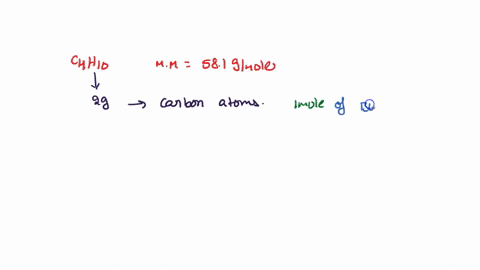 C4H10 M.M = 58.1 g/mole
2g → carbon atoms. 1mole of